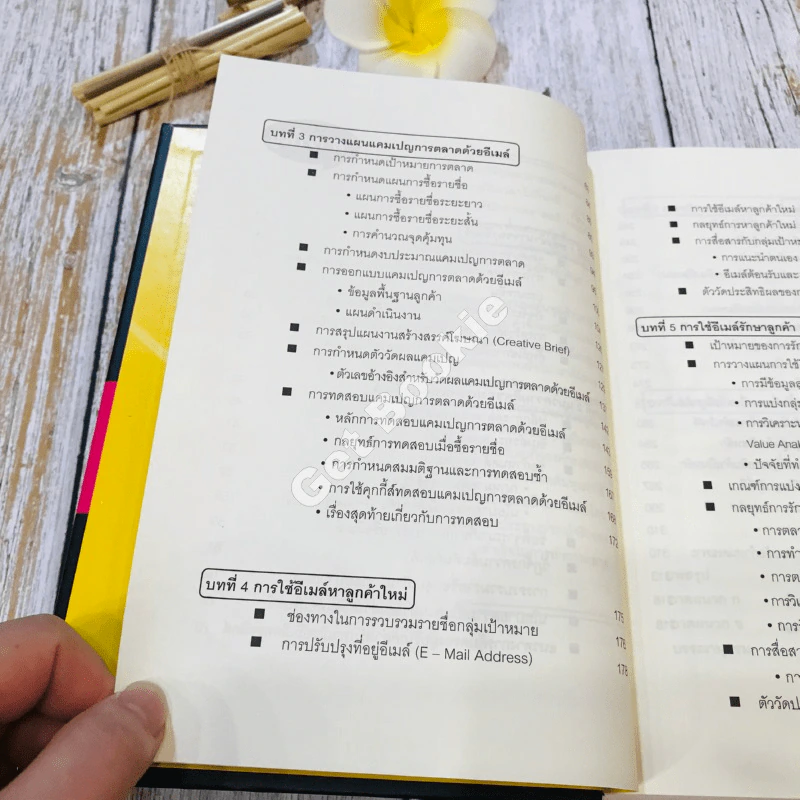 บทที่ 3 การวางแผนแคมเปญการตลาดด้วยอีเมล์
การกำหนดเป้าหมายการตลาด
การกำหนดแผนการซื้อรายชื่อ
• แผนการซื้อรายชื่อระยะยาว
• แผนการซื้อรายชื่อระยะสั้น
• การคำนวณจุดคุ้มทุน
การกำหนดงบประมาณแคมเปญการตลาด
การออกแบบแคมเปญการตลาดด้วยอีเมล์
• ข้อมูลพื้นฐานลูกค้า
• แผนดำเนินงาน
การสรุปแผนงานสร้างสรรค์โฆษณา (Creative Brief)
การกำหนดตัววัดผลแคมเปญ
• ตัวเลขอ้างอิงสำหรับวัดผลแคมเปญการตลาดด้วยอีเมล์
การทดสอบแคมเปญการตลาดด้วยอีเมล์
• หลักการทดสอบแคมเปญการตลาดด้วยอีเมล์
• กลยุทธ์การทดสอบเมื่อซื้อรายชื่อ
• การกำหนดสมมติฐานและการทดสอบซ้ำ
• การใช้คุกกี้ส์ทดสอบแคมเปญการตลาดด้วยอีเมล์
• เรื่องสุดท้ายเกี่ยวกับการทดสอบ 172
บทที่ 4 การใช้อีเมล์หาลูกค้าใหม่ 175
ช่องทางในการรวบรวมรายชื่อกลุ่มเป้าหมาย 176
การปรับปรุงที่อยู่อีเมล์ (E – Mail Address) 178
การใช้อีเมล์หาลูกค้าใหม่
กลยุทธ์การหาลูกค้าใหม่
การสื่อสารกับกลุ่มเป้าห
• การแนะนำตนเอง
• อีเมล์ต้อนรับและ
ตัววัดประสิทธิผลของก
บทที่ 5 การใช้อีเมล์รักษาลูกค้า
เป้าหมายของการรัก
การวางแผนการใช้
• การมีข้อมูลลู
• การแบ่งกลุ่ม
• การวิเคราะห
Value Anal
• ปัจจัยที่ทำ
เกณฑ์การแบ่ง
กลยุทธ์การรัก
• การตลา
• การทำ
• การต
• การวิเ
• การว
การสื่อสา
• กา
ตัววัดป
Get Bookie